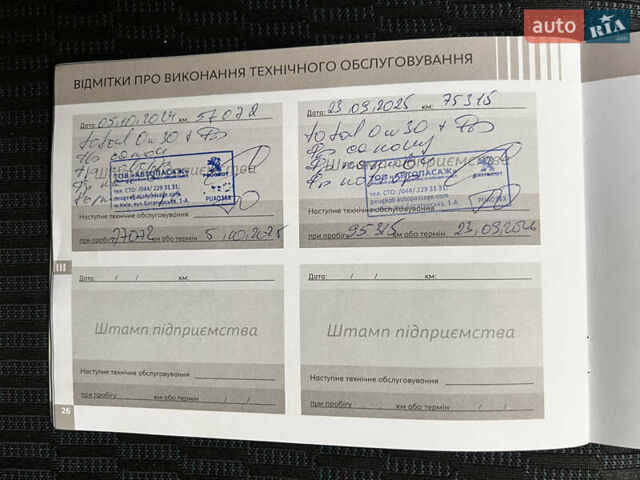 auto RIA .com
ВІДМІТКИ ПРО ВИКОНАННЯ ТЕХНІЧНОГО ОБСЛУГОВУВАННЯ
Дата: 05.10.2024 км: 57072
Total 0w30 + Фв
Фр салон
Штамп підприємства
ТОВ "АВТОПАСАЖ"
PEUGEOT
тел. СТО: /044/ 229 31 31;
peugeot-autopassage.com
м.Київ, вул.Богатирська, 1-А
PUA036X
Наступне технічне обслуговування
при пробігу 77072 км або термін 5.10.2025
Дата: 23.09.2025 км: 75315
Total 0w30 + Фв
Фр салону
Штамп підприємства
ТОВ "АВТОПАСАЖ"
PEUGEOT
тел. СТО: /044/ 229 31 31;
peugeot-autopassage.com
Богатирська, 1-А
PUA036X
Наступне технічне обслуговування
при пробігу 95315 км або термін 23.09.2026
Дата: / / км:
Штамп підприємства
Наступне технічне обслуговування
при пробігу км або термін / /
Дата: / / км:
Штамп підприємства
Наступне технічне обслуговування
при пробігу км або термін / /
III
26